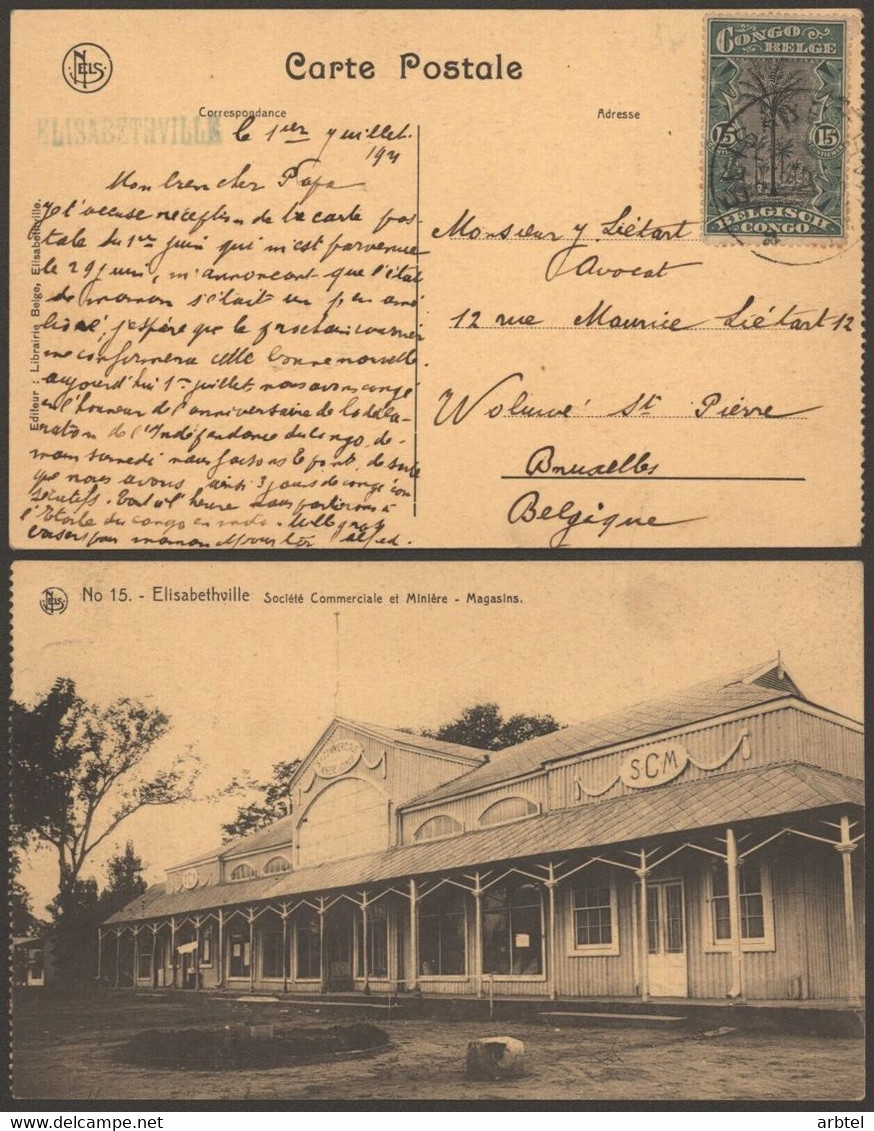 NELS
Carte Postale
CONGO BELGE
15 15
BELGISCH CONGO
Correspondance
Adresse
ELISABETHVILLE
le 1er Juillet
Mon bien cher Papa
Je t'accuse réception de la carte pos-
tale du 1er juin qui m'est parvenue
le 29 juin, m'annonçant que l'état
de maman s'était un peu amé-
lioré, j'espère que le prochain courrier
me confirmera cette bonne nouvelle
aujourd'hui 1er juillet nous avons congé
en l'honneur de l'anniversaire de la décla-
ration de l'Indépendance du Congo, de-
main samedi nous faisons le pont, de sorte
que nous avons ainsi 3 jours de congé con
sécutifs. Tout à l'heure nous partirons à
l'Etoile du Congo en
maman
Monsieur J. Liétart
Avocat
12 rue Maurice Liétart 12
Woluwé St Pierre
Bruxelles
Belgique
Editeur : Librairie Belge, Elisabethville.
NELS
No 15. - Elisabethville Société Commerciale et Minière - Magasins.
SCM
arbtel